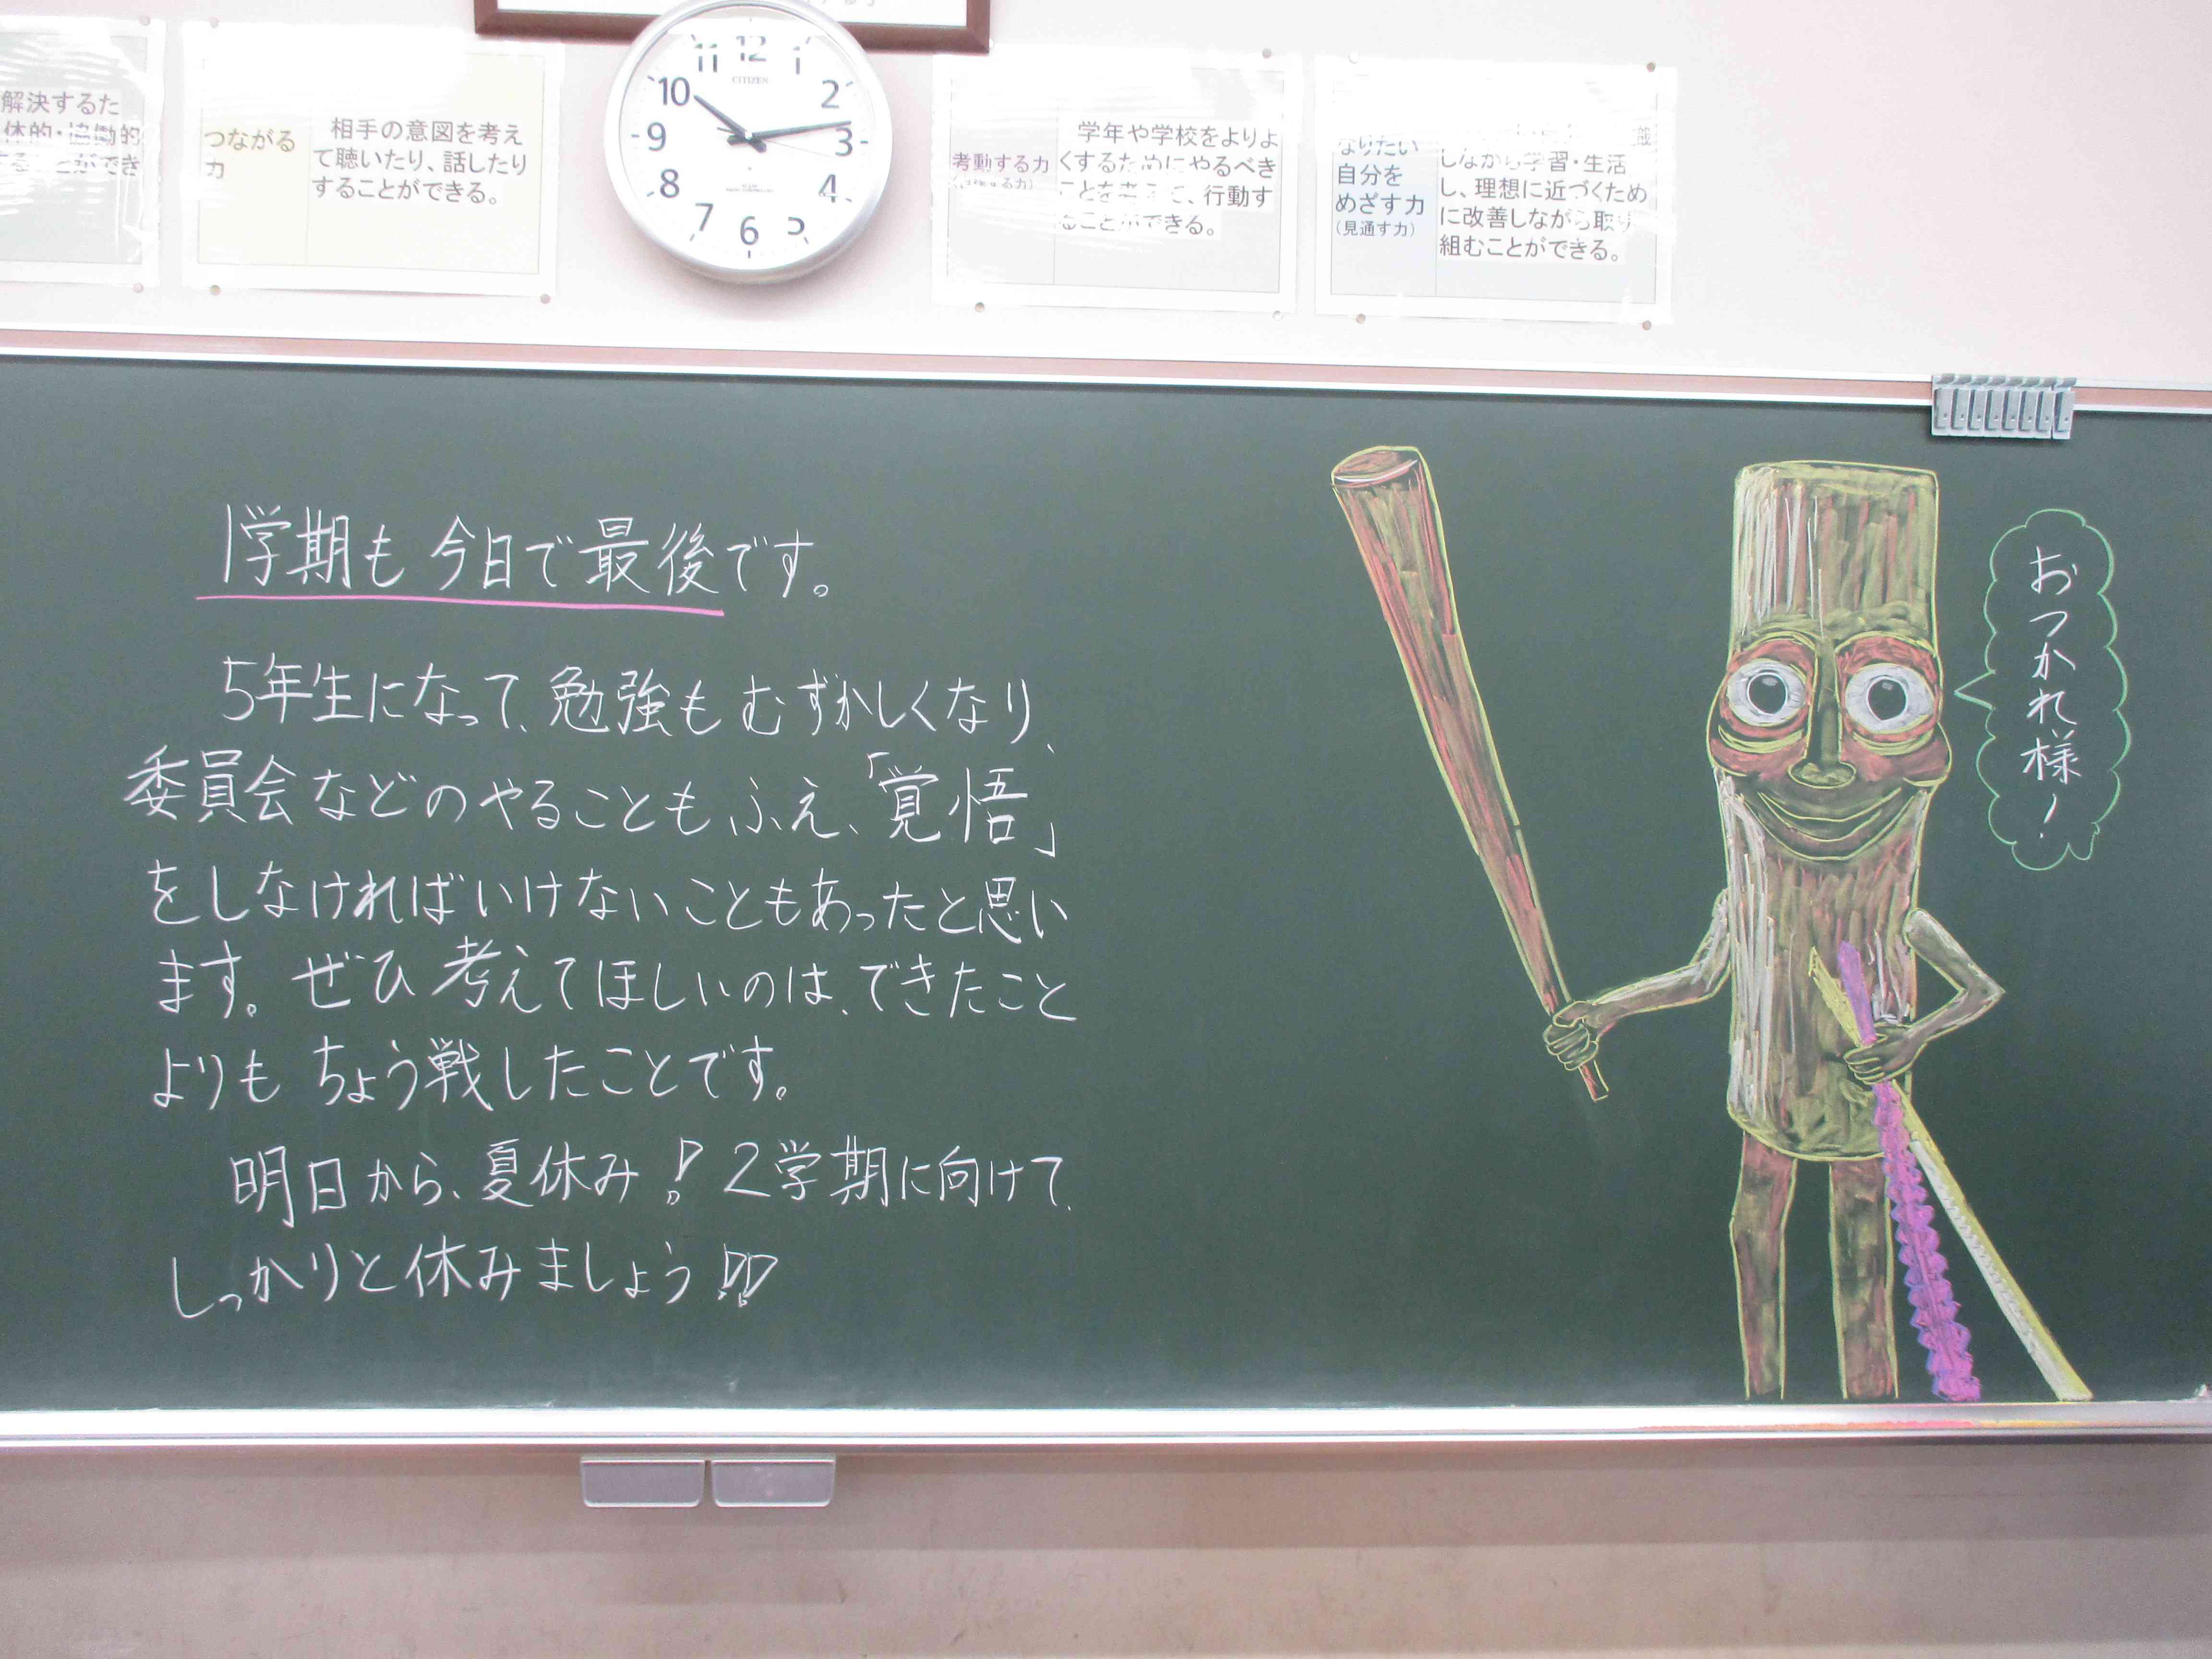 解決するた
体的・協働的
つながる
力
相手の意図を考え
て聴いたり、話したり
することができる。
12
1
2
3
4
5
6
7
8
9
10
11
CITIZEN
考動する力
学年や学校をよりよ
くするためにやるべき
ことを考えて、行動す
ることができる。
なりたい
自分を
めざす力
(見通す力)
しながら学習・生活
し、理想に近づくため
に改善しながら取り
組むことができる。
1学期も今日で最後です。
5年生になって、勉強もむずかしくなり、
委員会などのやることもふえ、「覚悟」
をしなければいけないこともあったと思い
ます。ぜひ考えてほしいのは、できたこと
よりもちょう戦したことです。
明日から、夏休み!2学期に向けて、
しっかりと休みましょう!!
おつかれ様!